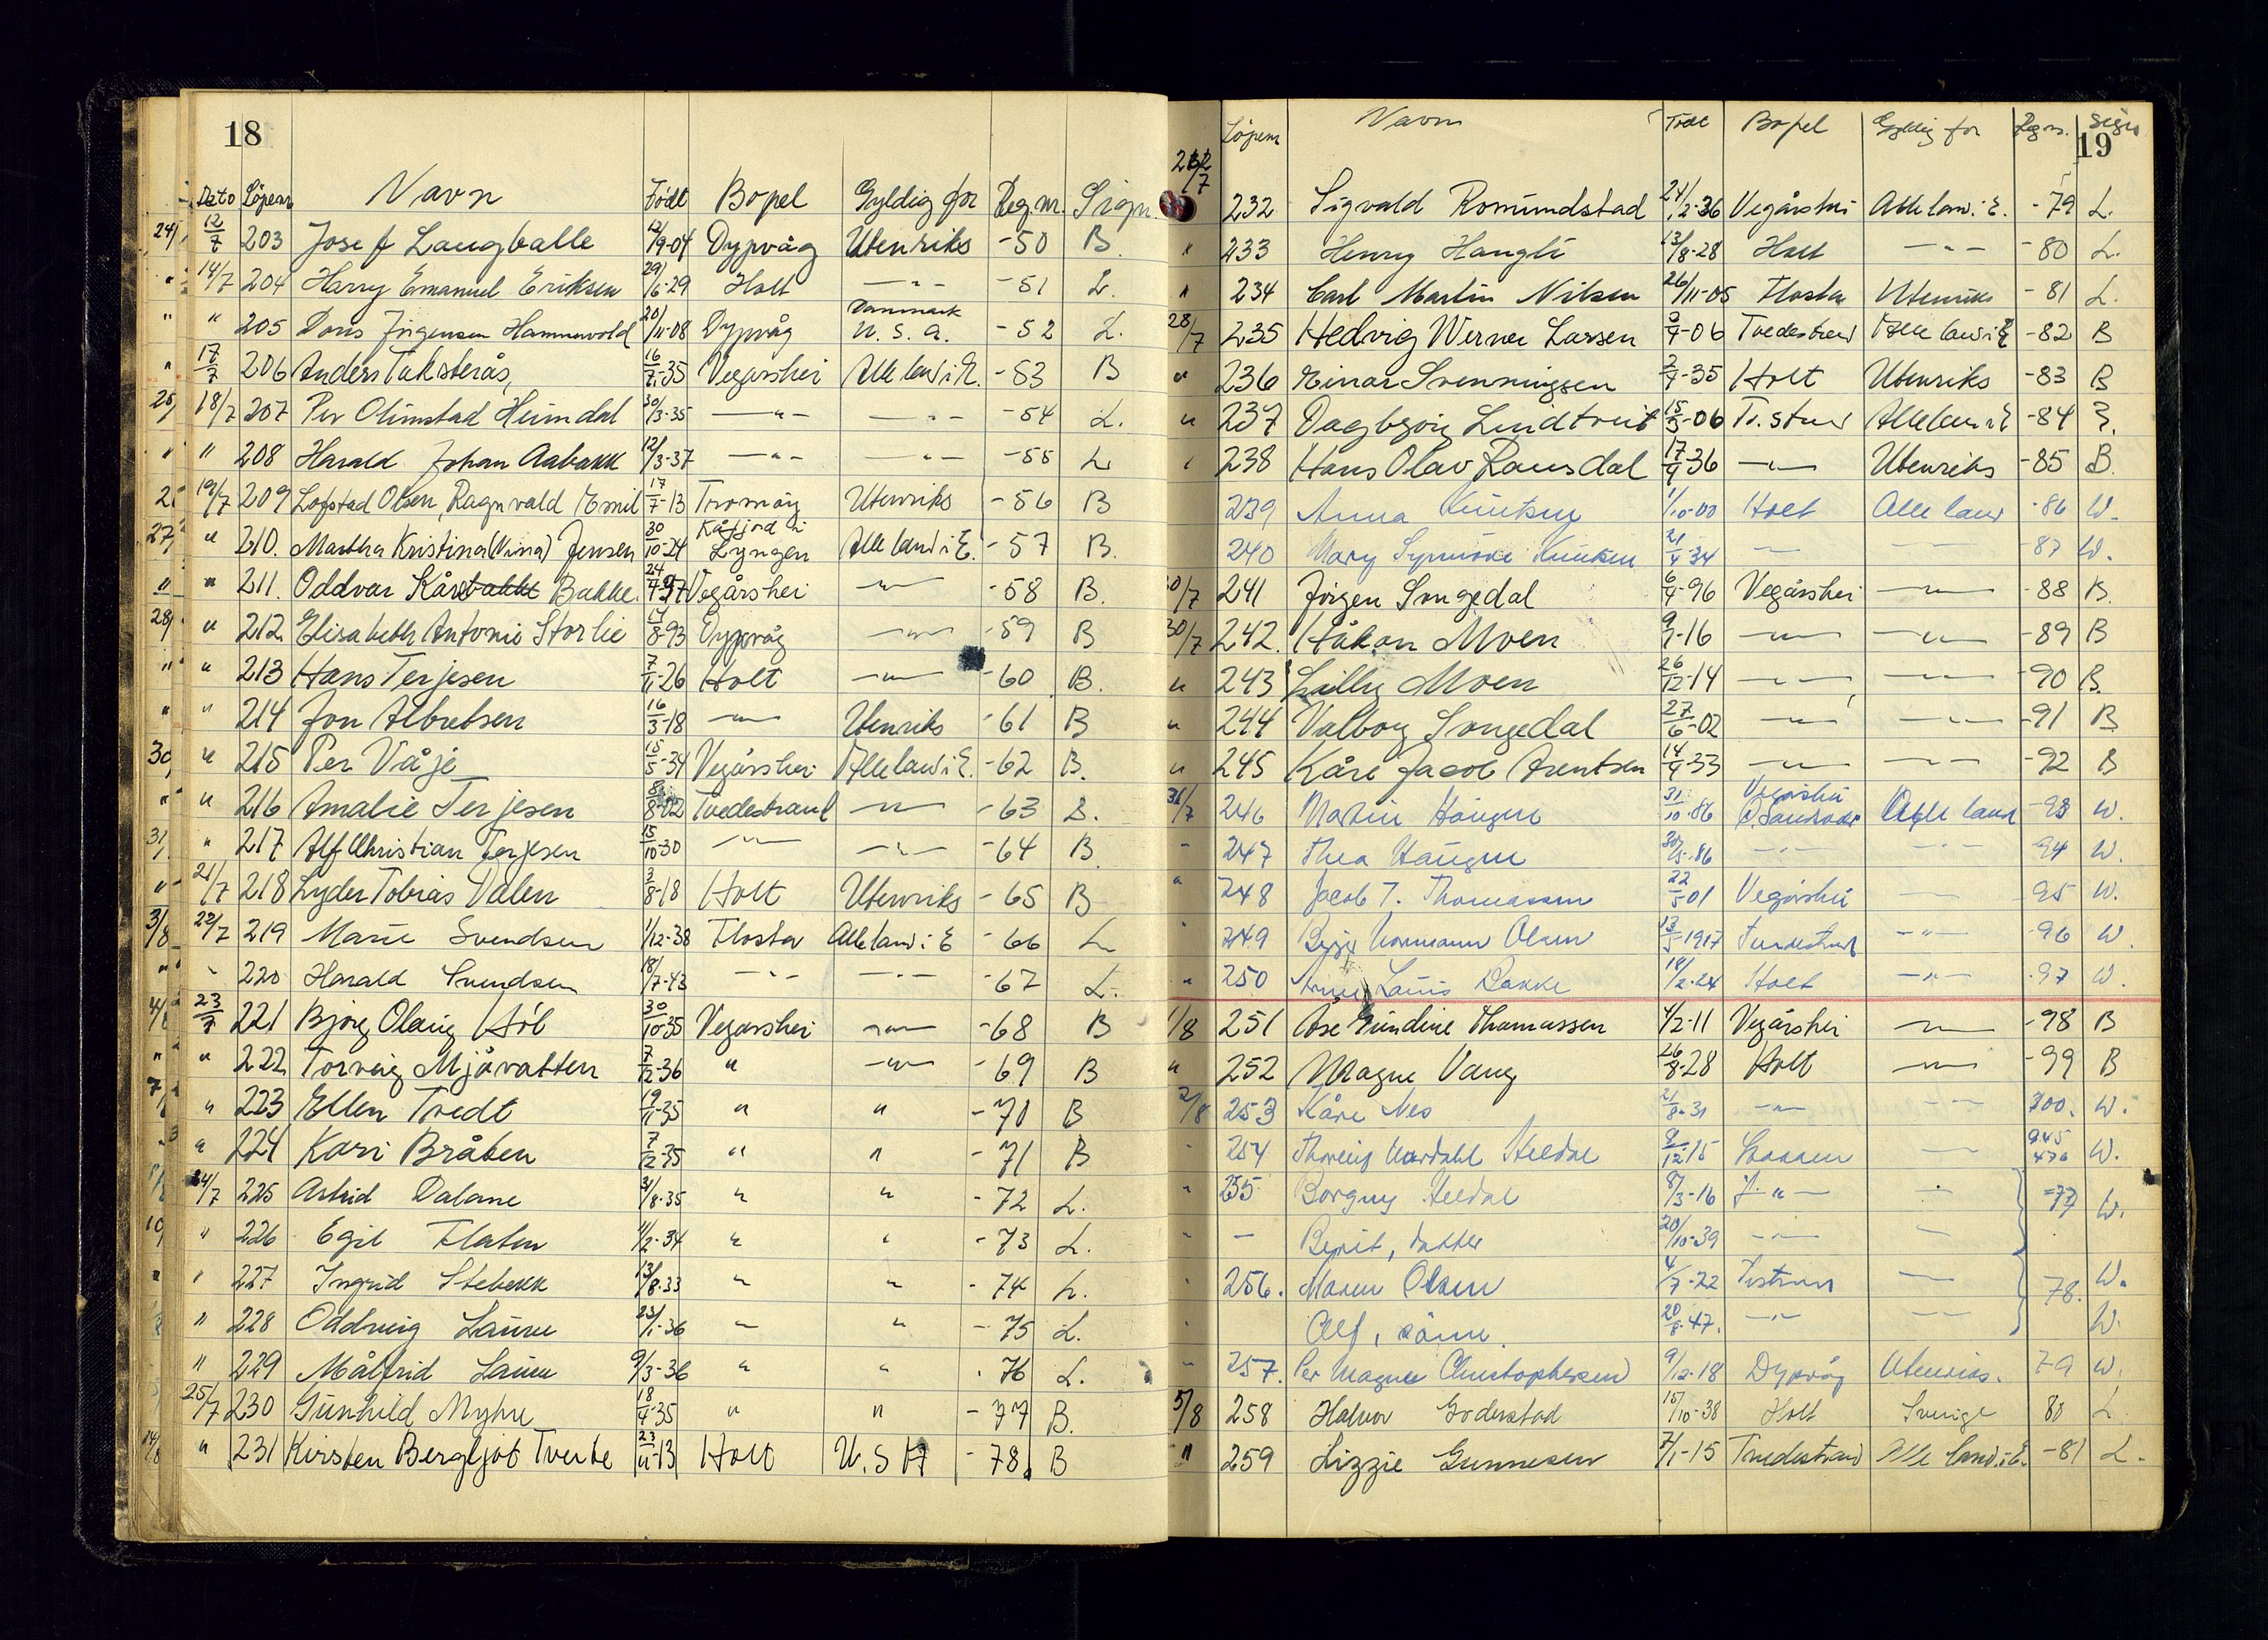 18
Dato Löpenr Navn Födt Bopel Gyldig for Reg.nr. Sign.
12/7 203 Josef Laugballe 12/9-04 Dypvåg Utenriks -50 B.
14/7 204 Harry Emanuel Eriksen 29/6-29 Holt —"— -51 L.
" " 205 Doris Jörgensen Hammervold 20/11-08 Dypvåg Danmark U.S.A. -52 L.
17/7 206 Anders Taksterås, 16/7-35 Vegårshei Alle land i E. -53 B
18/7 207 Per Olimstad Heimdal 30/3-35 —"— —"— -54 L.
" 208 Harald Johan Aabakk 12/3-37 —"— —"— -55 L
19/7 209 Lofstad Olsen, Ragnvald Emil 17/7-13 Tromøy Utenriks -56 B
" 210. Martha Kristina (Nina) Jensen 30/10-24 Kåfjord i Lyngen Alle land i E. -57 B.
" 211. Oddvar Kåre Bakke. Vegårshei —"— -58 B.
" 212. Elisabeth Antonie Storlie 8-93 Dypvåg —"— -59 B
" 213 Hans Terjesen 7/11-26 Holt —"— -60 B.
" 214 Jon Albretsen 16/3-18 —"— Utenriks -61 B
" 215 Per Våje 15/5-34 Vegårshei Alle land i E. -62 B.
" 216 Amalie Terjesen Tvedestrand —"— -63 B.
" 217 Alf Christian Terjesen 15/10-30 —"— —"— -64 B
21/7 218 Lyder Tobias Dalen 3/8-18 Holt Utenriks -65 B
22/7 219 Marie Svendsen 1/12-38 Flosta Alle land i E -66 L
" 220 Harald Svendsen 18/7-43 —"— —"— -67 L.
23/7 221 Bjørg Olaug Høl 30/10-35 Vegårshei —"— -68 B
" 222 Torveig Mjåvatten 7/12-36 " —"— -69 B
" 223 Ellen Tvedt 19/11-35 " " -70 B
" 224 Kari Bråten 7/12-35 " " -71 B
24/7 225 Astrid Dalane 31/8-35 " " -72 L.
" 226 Egil Flaten 2-34 " " -73 L.
" 227 Ingrid Stebekk 13/8-33 " " -74 L.
" 228 Oddveig Lauve 23/1-36 " " -75 L.
" 229 Målfrid Lauve 9/3-36 " " -76 L.
25/7 230 Gunhild Myhre 18/4-35 " " -77 B.
" 231 Kirsten Bergljot Tveite 23/11-13 Holt U.S.A -78 B
19
Löpenr Navn Födt Bopel Gyldig for Reg.nr. Sign
232 Sigvald Romundstad 24/12-36 Vegårshei Alle land i E. -79 L.
" 233 Henry Haugli 13/8-28 Holt —"— -80 L.
" 234 Carl Martin Nilsen 26/11-05 Flosta Utenriks -81 L.
28/7 235 Hedvig Werner Larsen Tvedestrand Alle land i E -82 B
" 236 Einar Svenningsen 2/7-35 Holt Utenriks -83 B
" 237 Dagbjørg Lindtveit 15/5-06 Tv.strand Alle land i E -84 B.
238 Hans Olav Ramsdal 17/9-36 —"— Utenriks -85 B.
239 Anna Knutsen 1/10-00 Holt Alle land -86 W.
240 Mary Synnøve Knutsen 21/4-34 — — -87 W.
30/7 241 Jörgen Songedal 6/4-96 Vegårshei —"— -88 B.
30/7 242. Håkon Moen -16 —"— —"— -89 B
" 243 Lilly Moen 26/12-14 —"— —"— -90 B.
" 244 Valborg Songedal 27/6-02 —"— —"— -91 B
" 245 Kåre Jacob Arentsen 14/9-33 —"— —"— -92 B
31/7 246 Martin Haugen 31/10-86 Vegårshei Alle land -93 W.
" 247 Thea Haugen -86 —"— —"— -94 W.
" 248 Jacob T. Thomassen 22/5-01 Vegårshei — -95 W.
" 249 Normann Olsen 13/5-1917 Tvedestrand —"— -96 W.
" 250 Bakke 18/2-24 Holt —"— -97 W.
1/8 251 Åse Gundine Thomassen 4/2-11 Vegårshei —"— -98 B
" 252 Magne Vang 26/8-28 Holt —"— -99 B
2/8 253 Kåre Nes 21/8-31 —"— —"— 700. W.
" 254 Heldal 9/12-15 — 945 476 W.
" 255 Borgny Heldal 8/3-16 —"— — -77 W.
" — Berit, datter 20/10-39 —"— —
" 256. Maren Olsen 4/7-22 — 78. W.
" Alf, sönn. 20/8-47. —"— — W.
" 257. Per Magne Christophersen 9/12-18 Dypvåg Utenriks. 79 W.
5/8 258 Halvor Goderstad 15/10-38 Holt Sverige 80 L
" 259 Lizzie Gunnesen 7/1-15 Tvedestrand Alle land i E. -81 L.